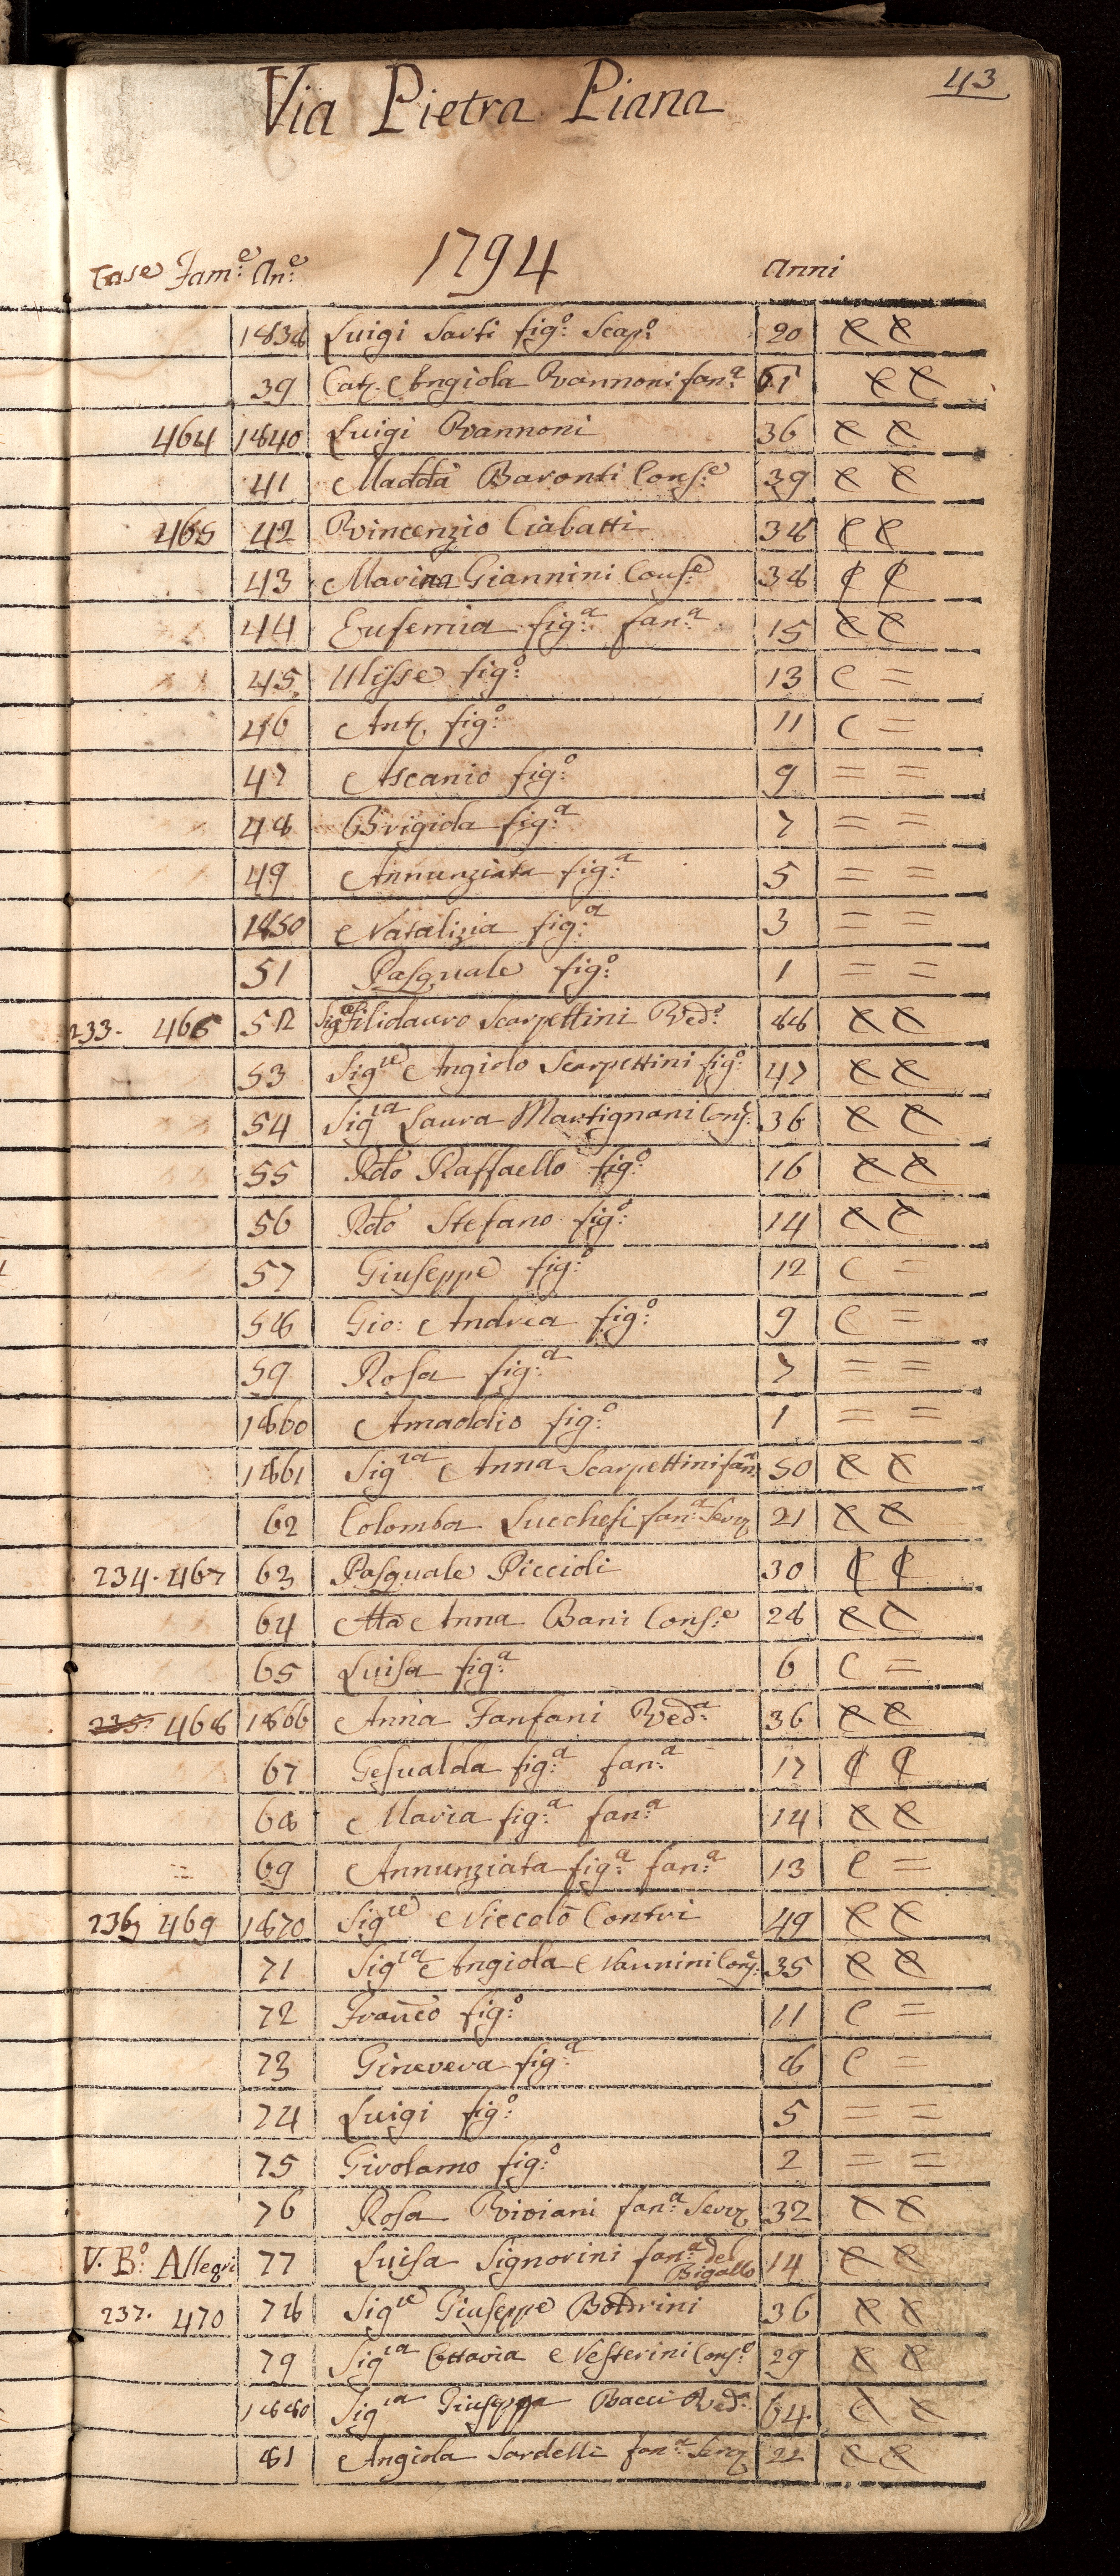 43
Via Pietra Piana
1794
Case Fam:e An:e Anni
1838 Luigi Sarti fig:o Scap:o 20 C C
39 Cat. Angiola Vannoni fan:a C C
464 1840 Luigi Vannoni 36 C C
41 Madda Baronti Cons:e 39 C C
465 42 Vincenzio Ciabatti 38 C C
43 Marina Giannini Cons:e 38 C C
44 Eufemia fig:a fan:a 15 C C
45 Ulisse fig:o 13 C =
46 Ant. fig:o 11 C =
47 Ascanio fig:o 9 = =
48 Brigida fig:a 7 = =
49 Annunziata fig:a 5 = =
1850 Natalizia fig:a 3 = =
51 Pasquale fig:o 1 = =
233. 466 52 Sig:re Filidauro Scarpettini Ved:o 88 C C
53 Sig:re Angiolo Scarpettini fig:o 47 C C
54 Sig:ra Laura Martignani Cons: 36 C C
55 Rdo Raffaello fig:o 16 C C
56 Rdo Stefano fig:o 14 C C
57 Giuseppe fig:o 12 C =
58 Gio: Andrea fig:o 9 C =
59 Rosa fig:a 7 = =
1860 Amaddio fig:o 1 = =
1861 Sig:ra Anna Scarpettini fan:a 50 C C
62 Colomba Lucchesi fan:a Serv. 21 C C
234. 467 63 Pasquale Piccioli 30 C C
64 Ma Anna Bani Cons:e 28 C C
65 Luisa fig:a 6 C =
235. 468 1866 Anna Fanfani Ved:a 36 C C
67 Gesualda fig:a fan:a 17 C C
68 Maria fig:a fan:a 14 C C
69 Annunziata fig:a fan:a 13 C =
236 469 1870 Sig:re Niccolò Contri 49 C C
71 Sig:ra Angiola Nannini Cons: 35 C C
72 Franco fig:o 11 C =
73 Ginevera fig:a 8 C =
74 Luigi fig:o 5 = =
75 Girolamo fig:o 2 = =
76 Rosa Viviani fan:a Serv. 32 C C
V. B:o Allegri 77 Luisa Signorini fan:a del Bigallo 14 C C
237. 470 78 Sig:re Giuseppe Bodrini 36 C C
79 Sig:ra Ottavia Nesterini Cons:e 29 C C
1880 Sig:ra Giuseppa Bacci Ved:a 64 C C
81 Angiola Sardelli fan:a Serv. 22 C C